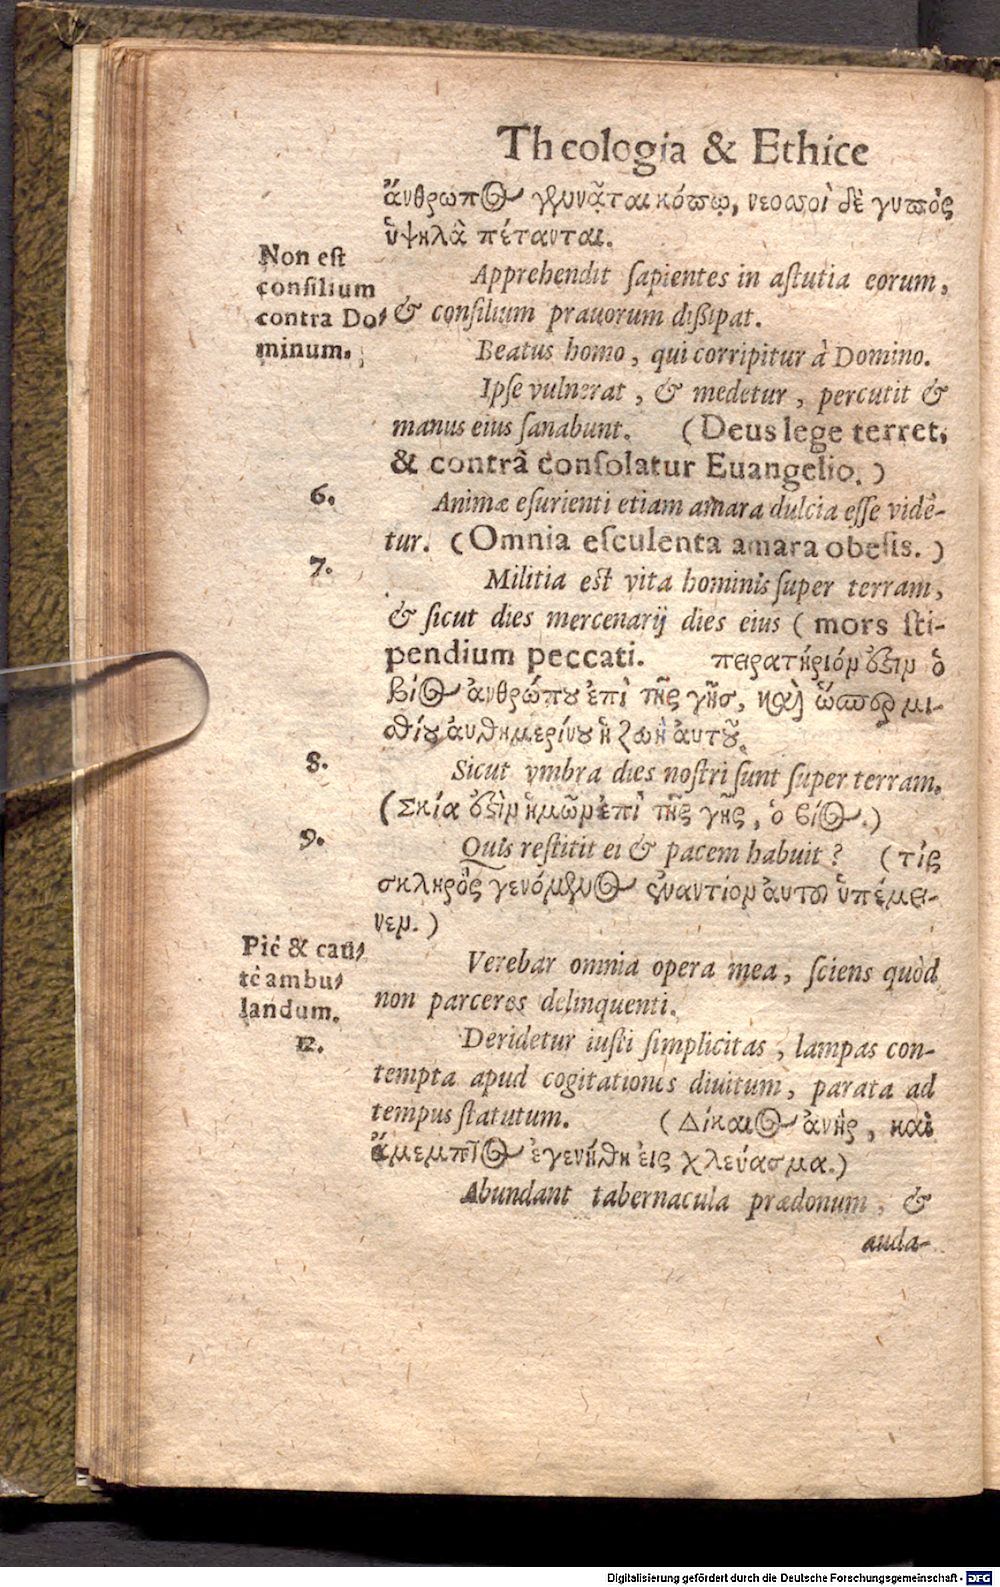 Theologia & Ethice
ἄνθρωπος γεννᾶται κόπῳ, νεοσσοὶ δὲ γυπὸς
ὑψηλὰ πέτανται.
Non est
consilium
contra Do⸗
minum.
Apprehendit ſapientes in aſtutia eorum,
& conſilium prauorum diſsipat.
Beatus homo, qui corripitur à Domino.
Ipſe vulnerat, & medetur, percutit &
manus eius ſanabunt. (Deus lege terret,
& contrà conſolatur Euangelio.)
6.
Animæ eſurienti etiam amara dulcia eſſe vidē-
tur. (Omnia eſculenta amara obeſis.)
7.
Militia est vita hominis ſuper terram,
& ſicut dies mercenarij dies eius (mors ſti-
pendium peccati. πειρατήριόν ἐστιν ὁ
βίος ἀνθρώπου ἐπὶ τῆς γῆς, καὶ ὥσπερ μι-
σθίου αὐθημερίνου ἡ ζωὴ αὐτοῦ.
8.
Sicut vmbra dies noſtri ſunt ſuper terram.
(Σκία ἐστὶν ἡμῶν ἐπὶ τῆς γῆς, ὁ βίος.)
9.
Quis reſtitit ei & pacem habuit? (τίς
σκληρὸς γενόμενος ἐναντίον αὐτοῦ ὑπέμει-
νεν.)
Piè & cau⸗
tè ambu⸗
landum.
Verebar omnia opera mea, ſciens quòd
non parceres delinquenti.
12.
Deridetur iuſti ſimplicitas, lampas con-
tempta apud cogitationes diuitum, parata ad
tempus ſtatutum. (Δίκαιος ἀνὴρ, καὶ
ἄμεμπτος ἐγενήθη εἰς χλεύασμα.)
Abundant tabernacula prædonum, &
auda-
Digitalisierung gefördert durch die Deutsche Forschungsgemeinschaft - DFG